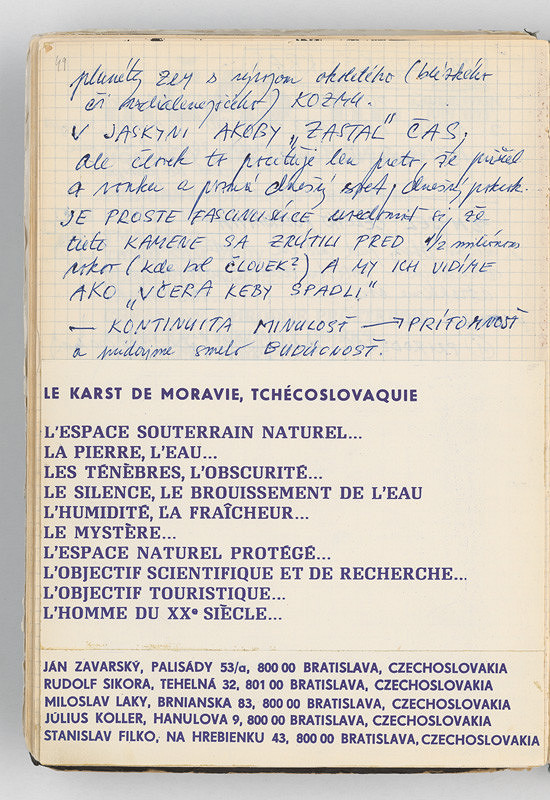 49
planéty zem s vývojom okolitého (blízkeho
či vzdialenejšieho) KOZMU.
V JASKYNI AKOBY „ZASTAL" ČAS,
ale človek to pociťuje len preto, že prišiel
z vonku a pozná dnešný svet, dnešný pokrok.
JE PROSTE FASCINUJÚCE uvedomiť si, že
tieto KAMENE SA ZRÚTILI PRED 1/2 miliónom
rokov (kde bol ČLOVEK?) A MY ICH VIDÍME
AKO „VČERA KEBY SPADLI"
— KONTINUITA MINULOSŤ → PRÍTOMNOSŤ
a pridajme smelo BUDÚCNOSŤ.
LE KARST DE MORAVIE, TCHÉCOSLOVAQUIE
L'ESPACE SOUTERRAIN NATUREL...
LA PIERRE, L'EAU...
LES TÉNÈBRES, L'OBSCURITÉ...
LE SILENCE, LE BROUISSEMENT DE L'EAU
L'HUMIDITÉ, LA FRAÎCHEUR...
LE MYSTÈRE...
L'ESPACE NATUREL PROTÉGÉ...
L'OBJECTIF SCIENTIFIQUE ET DE RECHERCHE...
L'OBJECTIF TOURISTIQUE...
L'HOMME DU XXe SIÈCLE...
JÁN ZAVARSKÝ, PALISÁDY 53/a, 800 00 BRATISLAVA, CZECHOSLOVAKIA
RUDOLF SIKORA, TEHELNÁ 32, 801 00 BRATISLAVA, CZECHOSLOVAKIA
MILOSLAV LAKY, BRNIANSKA 83, 800 00 BRATISLAVA, CZECHOSLOVAKIA
JÚLIUS KOLLER, HANULOVA 9, 800 00 BRATISLAVA, CZECHOSLOVAKIA
STANISLAV FILKO, NA HREBIENKU 43, 800 00 BRATISLAVA, CZECHOSLOVAKIA